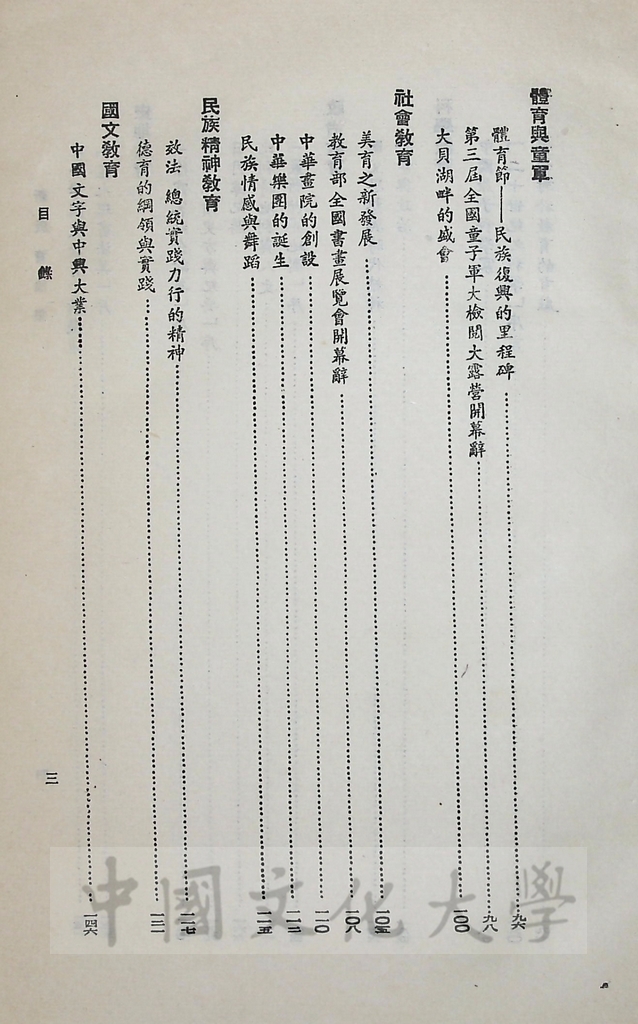 體育與童軍
體育節——民族復興的里程碑……九六
第三屆全國童子軍大檢閱大露營開幕辭……九八
大貝湖畔的盛會……一〇〇
社會教育
美育之新發展……一〇五
教育部全國書畫展覽會開幕辭……一〇八
中華畫院的創設……一一〇
中華樂團的誕生……一一二
民族情感與舞蹈……一一五
民族精神教育
效法 總統實踐力行的精神……一二七
德育的綱領與實踐……一三一
國文教育
中國文字與中興大業……一四六
目錄
三
中國文化大學